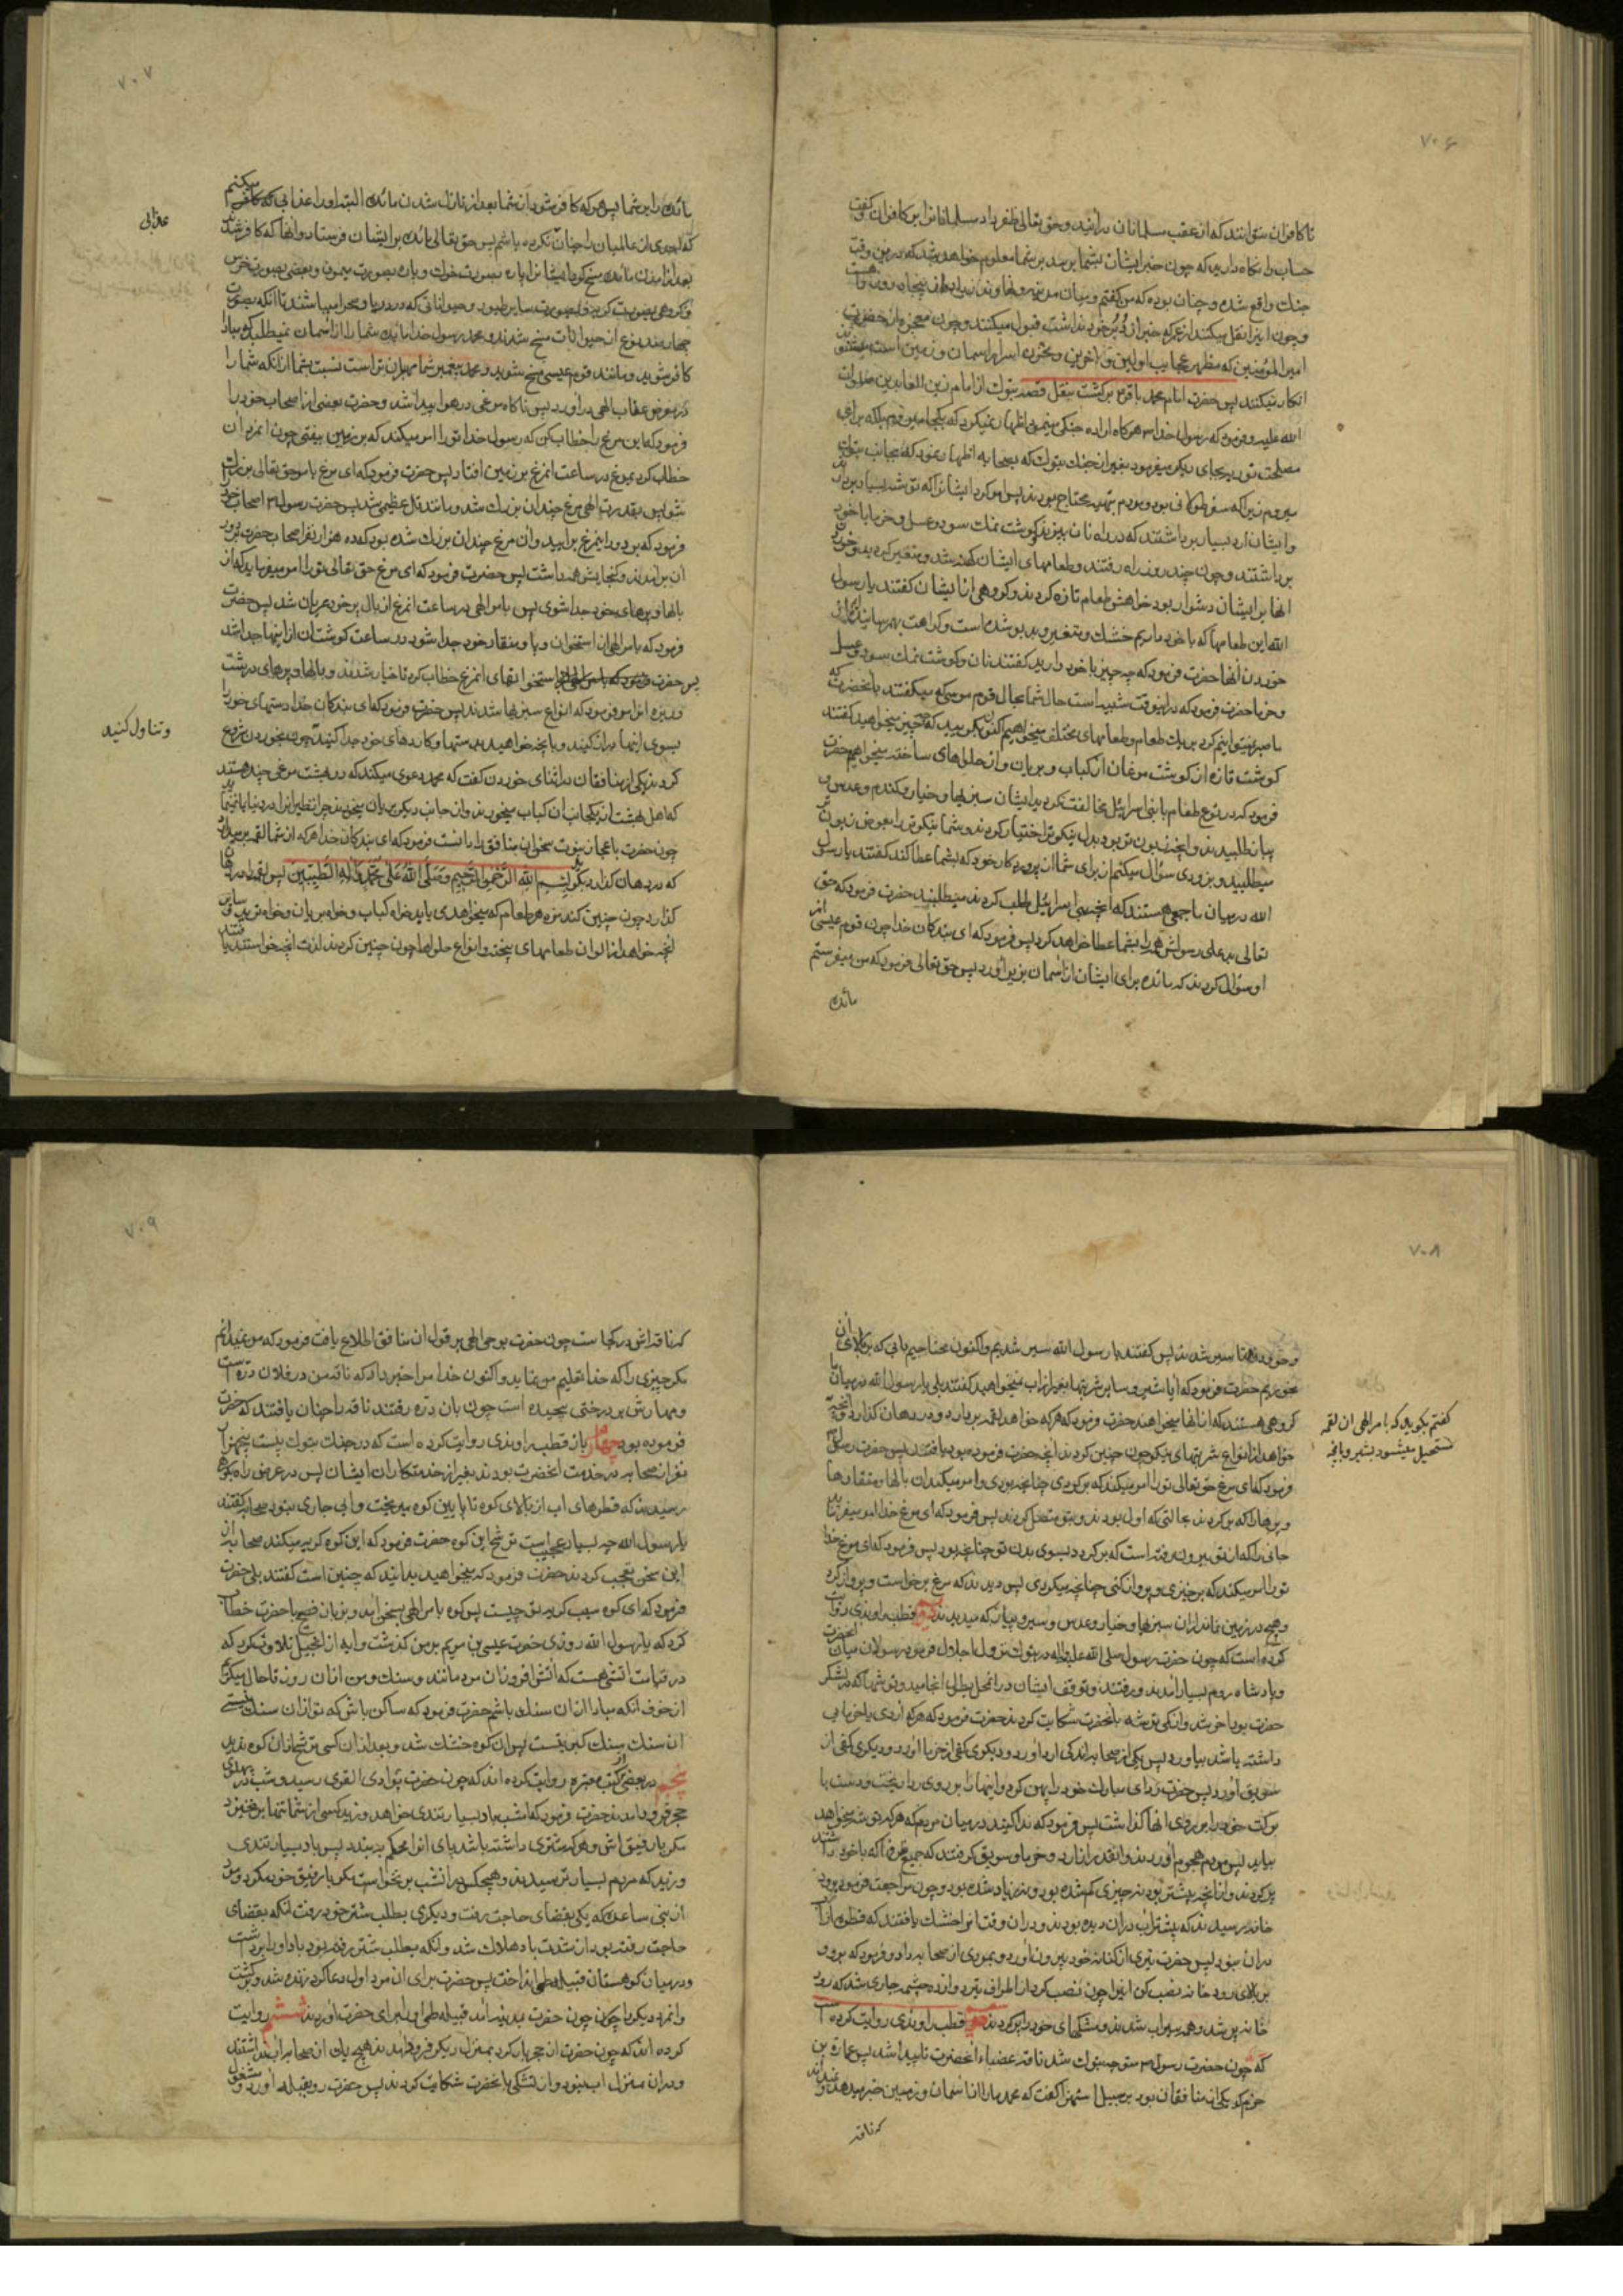 ۷۰۶
تا کافران نتوانند که از عقب مسلمانان درآیند و حق تعالی ظفر داد مسلمانانرا بر کافران و گفت
حساب را نگاه دارید که چون خبر ایشان بشما برسد بر شما معلوم خواهد شد که در همین وقت
جنك واقع شده و چنان بوده که من گفتم و میان مدینه و پنجاه روزه راه هست
و چون این را نقل میکنند از عمر که خبر از دُبُر خود نداشت قبول میکنند و چون معجزه از حضرت
امیر المؤمنین که مظهر عجایب اولین و آخرین و مخزن اسرار آسمان و زمین است میشنوند
انکار میکنند پس حضرت امام محمد باقر برگشت بنقل قصه تبوك از امام زین العابدین صلوات
الله علیه و فرمود که رسول خدا هرگاه اراده جنکی مینمود اظهار نمیکرد که بکجا میروم بلکه برای
مصلحت توریه بجای دیگر میفرمود بغیر از جنك تبوك که بصحابه اظهار نمود که بجانب تبوك
میروم زیرا که سفر طولانی بود و مردم بتهیه محتاج بودند پس امر کرد ایشانرا که توشه بسیار بردارند
و ایشان آرد بسیار برداشتند که در راه نان بپزند و گوشت نمك سود و عسل و خرما با خود
برداشتند و چون چند روز راه رفتند و طعامهای ایشان کهنه شد و متغیر گردید و خوردن
آنها بر ایشان دشوار بود خواهش طعام تازه کردند و گروهی از ایشان گفتند یا رسول
الله این طعامها که با خود داریم خشك و متغیر و بدبو شده است و کراهت بهم رسانیده‌ایم از
خوردن آنها حضرت فرمود که چه چیز با خود دارید گفتند نان و گوشت نمك سود و عسل
و خرما حضرت فرمود که در اینوقت شبیه است حال شما بحال قوم موسی که میگفتند بآنحضرت که
ما صبر نمیتوانیم کرد بر یك طعام و طعامهای مختلف میخواهیم اکنون بگویید که چه چیز میخواهید گفتند
گوشت تازه از گوشت مرغان از کباب و بریان و از حلواهای ساخته میخواهیم حضرت
فرمود که در نوع طعام با بنی اسرائیل مخالفت کردید ایشان سبزیها و خیار و گندم و عدس و
پیاز طلبیدند و آنچه زبون تر بود بدل نیکوتر اختیار کردند و شما نیکوتر را بعوض زبون‌تر
میطلبید و بزودی سؤال میکنم از برای شما از پروردگار خود که بشما عطا کند گفتند یا رسول
الله در میان ما جمعی هستند که آنچه بنی اسرائیل طلب کردند میطلبند حضرت فرمود که حق
تعالی بدعای رسولش همه را بشما عطا خواهد کرد پس فرمود که ای بندکان خدا چون قوم عیسی از
او سؤال کردند که مائده برای ایشان از آسمان بزیر آورد پس حق تعالی فرمود که من میفرستم
مائده
۷۰۷
مائده را بر شما پس هر که کافر شود از شما بعد از نازل شدن مائده البته او را عذابی میکنم
که احدی از عالمیان را چنان نکرده باشم پس حق تعالی مائده بر ایشان فرستاد و آنها که کافر شدند
بعد از آمدن مائده مسخ کرد ایشانرا پاره بصورت خوك و پاره بصورت میمون و بعضی بصورت خرس
و گروهی بصورت گربه و بصورت سایر طیور و حیواناتی که در دریا و صحرا میباشند تا آنکه بصورت
چهارصد نوع از حیوانات مسخ شدند و محمد رسول خدا مائده شما را از آسمان نمیطلبد که مبادا
کافر شوید و مانند قوم عیسی مسخ شوید و محمد پیغمبر شما مهربان تر است نسبت بشما از آنکه شما را
در معرض عقاب الهی درآورد پس ناگاه مرغی در هوا پیدا شد و حضرت بعضی از اصحاب خود را
فرمود که این مرغ را خطاب کن که رسول خدا تو را امر میکند که بر زمین بیفتی چون آنمرد آن
خطاب کرد بمرغ در ساعت آنمرغ بر زمین افتاد پس حضرت فرمود که ای مرغ بامر حق تعالی بزرك
شو پس بقدرت الهی مرغ چندان بزرك شد و مانند تل عظیمی شد پس حضرت رسول اصحاب خود
فرمود که بر دور اینمرغ برآیید و آن مرغ چندان بزرك شده بود که ده هزار نفر اصحاب حضرت بر دور
آن برآمدند و گنجایش همه داشت پس حضرت فرمود که ای مرغ حق تعالی تو را امر میفرماید که از
بالها و پرهای خود جدا شوی پس بامر الهی در ساعت آنمرغ از بال و پر خود عریان شد پس حضرت
فرمود که بامر الهی از استخوان و پا و منقار خود جدا شود در ساعت گوشت آن از اینها جدا شد
پس حضرت استخوانهای آنمرغ خطاب کرد تا خیار شدند و بالها و پرهای درشت
و ریزه او را امر فرمود که انواع سبزیها شدند پس حضرت فرمود که ای بندکان خدا دستهای خود را
بسوی اینها دراز کنید و بآنچه خواهید بدستها و کاردهای خود جدا کنید چون بخوردن شروع
کردند یکی از منافقان در اثنای خوردن گفت که محمد دعوی میکند که در بهشت مرغی چند هستند
که اهل بهشت از یکجانب آن کباب میخورند و از جانب دیگر بریان میخورند چرا نظیر آنرا در دنیا بما نمینماید
چون حضرت باعجاز نبوت سخن آن منافق را دانست فرمود که ای بندکان خدا هر که از شما لقمه بردارد
که در دهان گذارد بگوید بِسْمِ اللهِ الرَّحْمنِ الرَّحِیمِ وَصَلَّی اللهُ عَلی مُحَمَّدٍ وَآلِهِ الطَّیِّبِینَ پس لقمه را در دهان
گذارد چون چنین کند مزه هر طعام که میخواهد می یابد خواه کباب و خواه بریان و خواه ترید و سایر
آنچه خواهد از الوان طعامهای پخته و انواع حلواها چون چنین کردند لذت آنچه خواستند یافتند
عذابی
و تناول کنید
۷۰۸
و خوردند تا سیر شدند پس گفتند یا رسول الله سیر شدیم و اکنون محتاجیم بآبی که بر بالای آن
بخوریم حضرت فرمود که آیا شیر و سایر شربتها بغیر از آب نمیخواهید گفتند بلی یا رسول الله در میان ما
گروهی هستند که از آنها میخواهند حضرت فرمود که هر که خواهد لقمه بردارد و در دهان گذارد و آنچه
خواهد از انواع شربتهای نیکو چون چنین کردند آنچه حضرت فرموده بود یافتند پس حضرت رسول
فرمود که ای مرغ حق تعالی تو را امر میکند که برگردی چنانچه بودی و امر میکند آن بالها و منقارها
و پرها را که برگردند بحالتی که اول بودند و بتو متصل گردند پس فرمود که ای مرغ خدا امر میفرماید
جانی را که از تو بیرون رفته است که برگردد بسوی بدن تو چنانچه بود پس فرمود که ای مرغ خدا
تو را امر میکند که برخیزی و پرواز کنی چنانچه میکردی پس دیدند که مرغ برخواست و پرواز کرد
و هیچ در زمین نماند از آن سبزیها و خیار و عدس و سیر و پیاز که میدیدند قطب راوندی روایت
کرده است که چون حضرت رسول صلی الله علیه و آله در تبوك نزول اجلال فرمود رسولان میان آنحضرت
و پادشاه روم بسیار آمدند و رفتند و توقف ایشان در آنمحل بطول انجامید و توشها که در لشکر
حضرت بود آخر شد و از کمی توشه بآنحضرت شکایت کردند حضرت فرمود که هر که آردی یا خرمایی
داشته باشد بیاورد پس یکی از صحابه اندکی آرد آورد و دیگری کفی از خرما آورد و دیگری کفی از
سویق آورد پس حضرت ردای مبارك خود را پهن کرد و اینها را بر روی ردا ریخت و دست با
برکت خود را بر روی آنها گذاشت پس فرمود که ندا کنید در میان مردم که هر که توشه میخواهد
بیاید پس مردم هجوم آوردند و آنقدر از آرد و خرما و سویق گرفتند که جمیع ظرفها که با خود داشتند
پر کردند و از آنچه پیشتر بود نه چیزی کم شده بود و نه زیاد شده بود و چون مراجعت فرمود برود
خانه رسیدند که پیشتر آب در آن دیده بودند و در آن وقت آنرا خشك یافتند که قطره از آب
در آن نبود پس حضرت تیری از کنانه خود بیرون آورد و بمردی از صحابه داد و فرمود که برو و
بر بالای رودخانه نصب کن این را چون نصب کرد از اطراف تیر دوازده چشمه جاری شد که رود
خانه پر شد و همه سیراب شدند و مشکهای خود را پر کردند قطب راوندی روایت کرده است
که چون حضرت رسول متوجه تبوك شد ناقه عضباء آنحضرت ناپیدا شد پس عمارة بن
حزم که یکی از منافقان بود بر سبیل استهزا گفت که محمد ما را از آسمان و زمین خبر میدهد و نمیداند
که ناقه
گفتم بگوید که بامر الهی آن لقمه
مستحیل میشود بشیر و بآنچه
۷۰۹
که ناقه اش در کجاست چون حضرت بوحی الهی بر قول آن منافق اطلاع یافت فرمود که من نمیدانم
مگر چیزی را که خدا تعلیم من نماید و اکنون خدا مرا خبر داد که ناقه من در فلان دره است
و مهارش بر درختی پیچیده است چون بآن دره رفتند ناقه را چنان یافتند که حضرت
فرموده بود چهارم باز قطب راوندی روایت کرده است که در جنك تبوك بیست و پنجهزار
نفر از صحابه در خدمت آنحضرت بودند بغیر از خدمتکاران ایشان پس در عرض راه بکوهی
رسیدند که قطرهای آب از بالای کوه تا پایین کوه میریخت و آبی جاری نبود صحابه گفتند
یا رسول الله چه بسیار عجیب است ترشح این کوه حضرت فرمود که این کوه گریه میکند صحابه از
این سخن تعجب کردند حضرت فرمود که میخواهید بدانید که چنین است گفتند بلی حضرت
فرمود که ای کوه سبب گریه تو چیست پس کوه بامر الهی بسخن آمد و بزبان فصیح با حضرت خطاب
کرد که یا رسول الله روزی حضرت عیسی بن مریم بر من گذشت و آیه از انجیل تلاوت کرد که
در قیامت آتشی هست که آتش افروز آن مردمانند و سنك و من از آن روز تا حال میگریم
از خوف آنکه مبادا از آن سنك باشم حضرت فرمود که ساکن باش که تو از آن سنك نیستی
آن سنك سنك کبریتست پس آن کوه خشك شد و بعد از آن کسی ترشح از آن کوه ندید
پنجم در بعضی از کتب معتبره روایت کرده اند که چون حضرت بوادی القری رسید و شب در پهلوی
حجر فرود آمدند حضرت فرمود که امشب باد بسیار تندی خواهد وزید کسی از شما تنها برنخیزد
مگر با رفیق اش و هر که شتری داشته باشد پای آنرا محکم ببندد پس باد بسیار تندی
وزید که مردم بسیار ترسیدند و هیچکس در آنشب برنخواست مگر با رفیق خود مگر دو مرد
از بنی ساعده که یکی بقضای حاجت رفت و دیگری بطلب شتر خود رفت آنکه بقضای
حاجت رفته بود از شدت باد هلاك شد و آنکه بطلب شتر رفته بود باد او را برداشت
و در میان کوهستان قبیله طی انداخت پس حضرت برای آن مرد اول دعا کرد زنده شد و برگشت
و آنمرد دیگر را چون حضرت بمدینه آمد قبیله طی او را برای حضرت آوردند ششم روایت
کرده اند که چون حضرت از حجر بار کرد بمنزل دیگر فرود آمدند هیچ یك از صحابه آب نداشتند
و در آن منزل آب نبود و از تشنگی بآنحضرت شکایت کردند پس حضرت رو بقبله آورد و مشغول